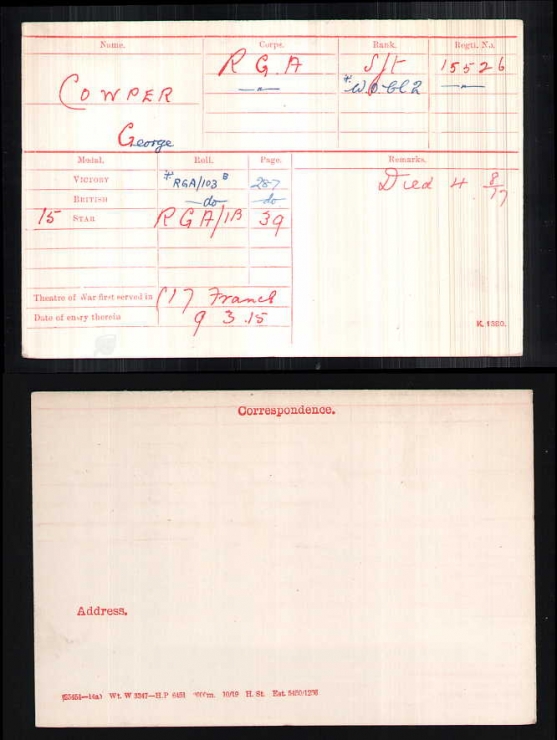 Name. Corps. Rank. Regtl. No.
COWPER R G A S/t 15526
—"— * W.O. Cl 2 —"—
George
Medal. Roll. Page. Remarks.
VICTORY * RGA/103 B 287 Died 4 8/17
BRITISH —do— —do—
15 STAR RGA/1B 39
Theatre of War first served in (1) France
Date of entry therein 9 3.15
K. 1380.
Correspondence.
Address.
Wt. W 3347—H.P 10/19 H. St.